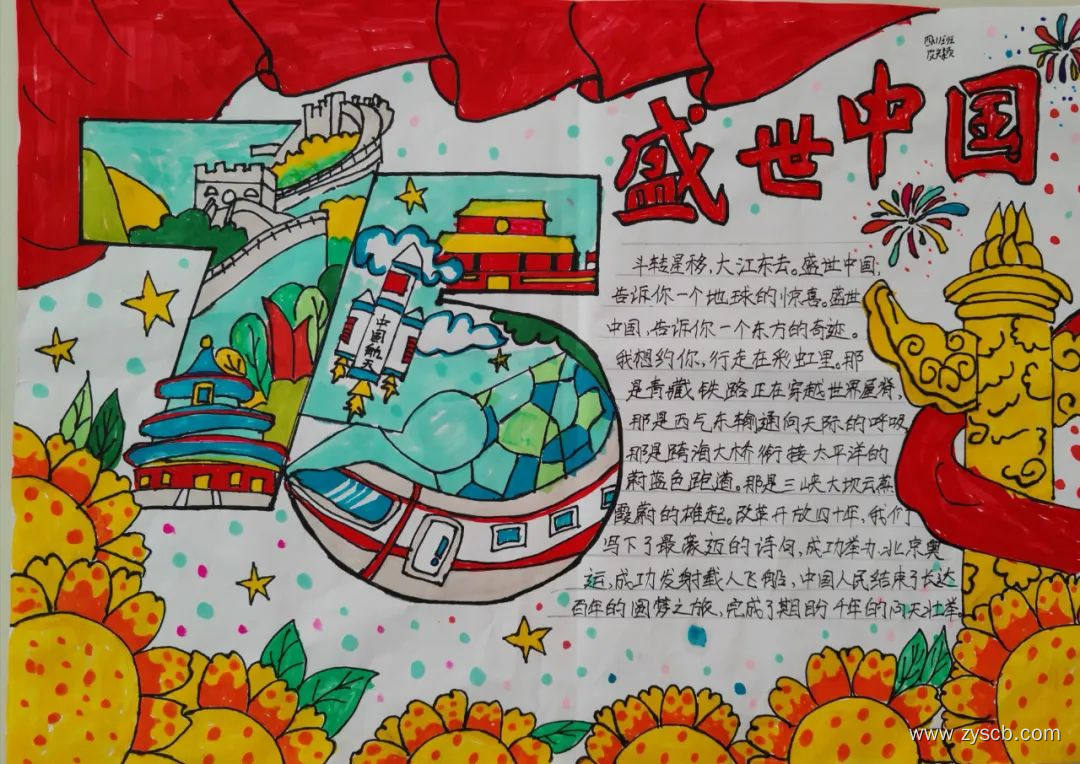 盛世中国
中国航天
斗转星移,大江东去。盛世中国,
告诉你一个地球的惊喜。盛世
中国,告诉你一个东方的奇迹。
我想约你,行走在彩虹里。那
是青藏铁路正在穿越世界屋脊,
那是西气东输通向天际的呼吸
那是跨海大桥衔接太平洋的
蔚蓝色跑道。那是三峡大坝云蒸
霞蔚的雄起。改革开放四十年,我们
写下了最豪迈的诗句,成功举办北京奥
运,成功发射载人飞船,中国人民结束了长达
百年的圆梦之旅,完成了期盼千年的问天壮举。
www.zyscb.com